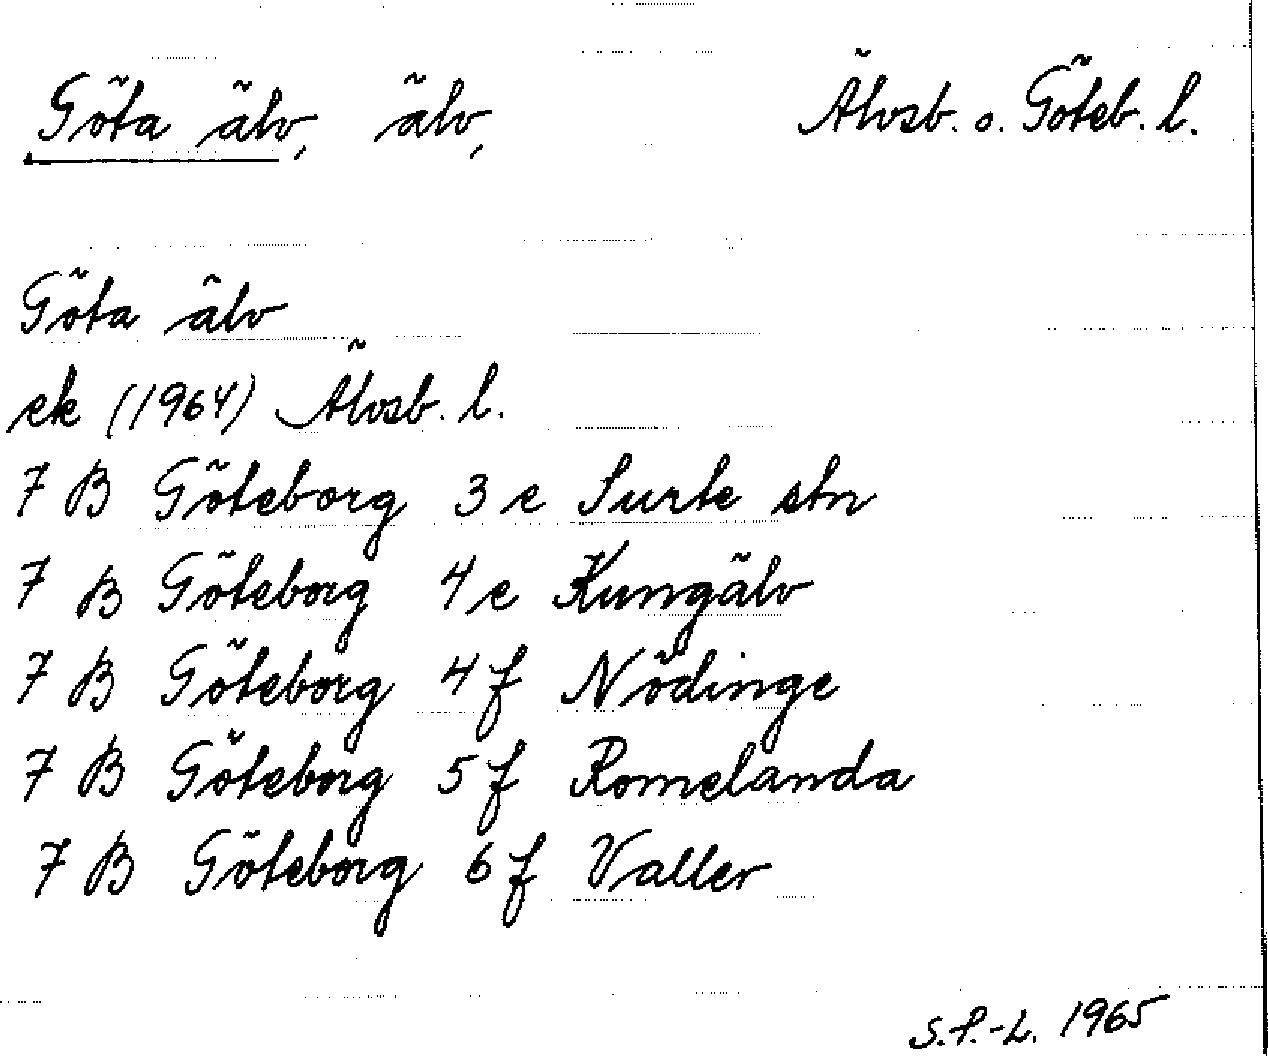 Göta älv, älv, Älvsb. o. Göteb. l.
Göta älv
ek (1964) Älvsb. l.
7 B Göteborg 3 e Surte stn
7 B Göteborg 4 e Kungälv
7 B Göteborg 4 f Nödinge
7 B Göteborg 5 f Romelanda
7 B Göteborg 6 f Valler
S.P.-L. 1965